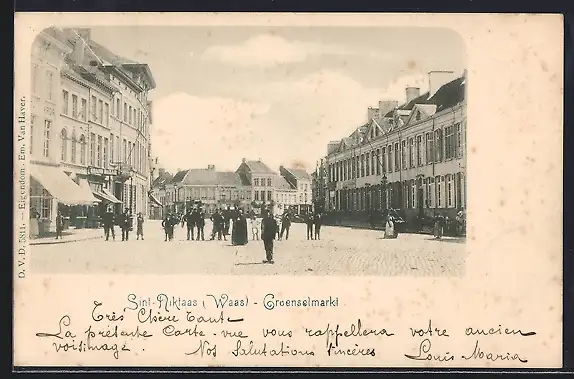 D. V. D. 5811. — Eigendom. Em. Van Haver.
Sint-Niklaas (Waas) - Groenselmarkt
Très Chère Tante
La présente Carte-vue vous rappellera votre ancien
voisinage. Nos Salutations sincères Louis Maria